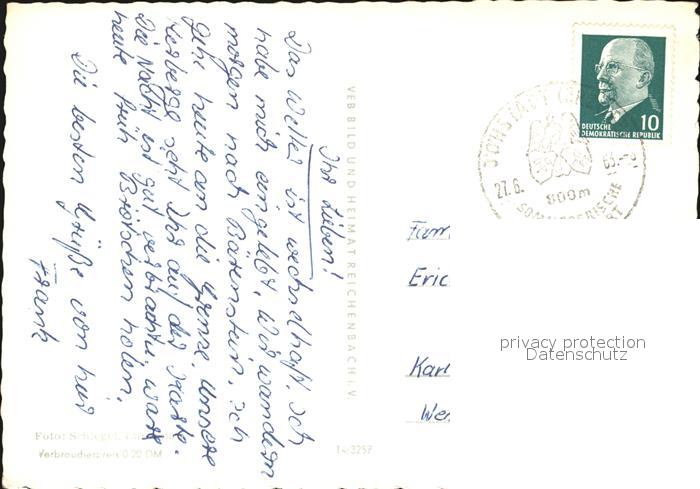 Ihr Lieben!
Das Wetter ist wechselhaft. Ich
habe mich eingelebt. Wir wandern
morgen nach Bärenstein. Ich
gehe heute an die Grenze. Unsere
Herberge seht Ihr auf der Karte.
Die Nacht ist gut verbracht, war
heute früh Brötchen holen.
Die besten Grüße von hier
Frank
VEB BILD UND HEIMAT REICHENBACH i. V.
Foto: Schlegel,
Verbraucherpreis 0.20 DM
14/3257
10
DEUTSCHE
DEMOKRATISCHE REPUBLIK
JÖHSTADT
27.6.
800m
SOMMERFRISCHE
Fam
Eric
Karl
We
privacy protection
Datenschutz